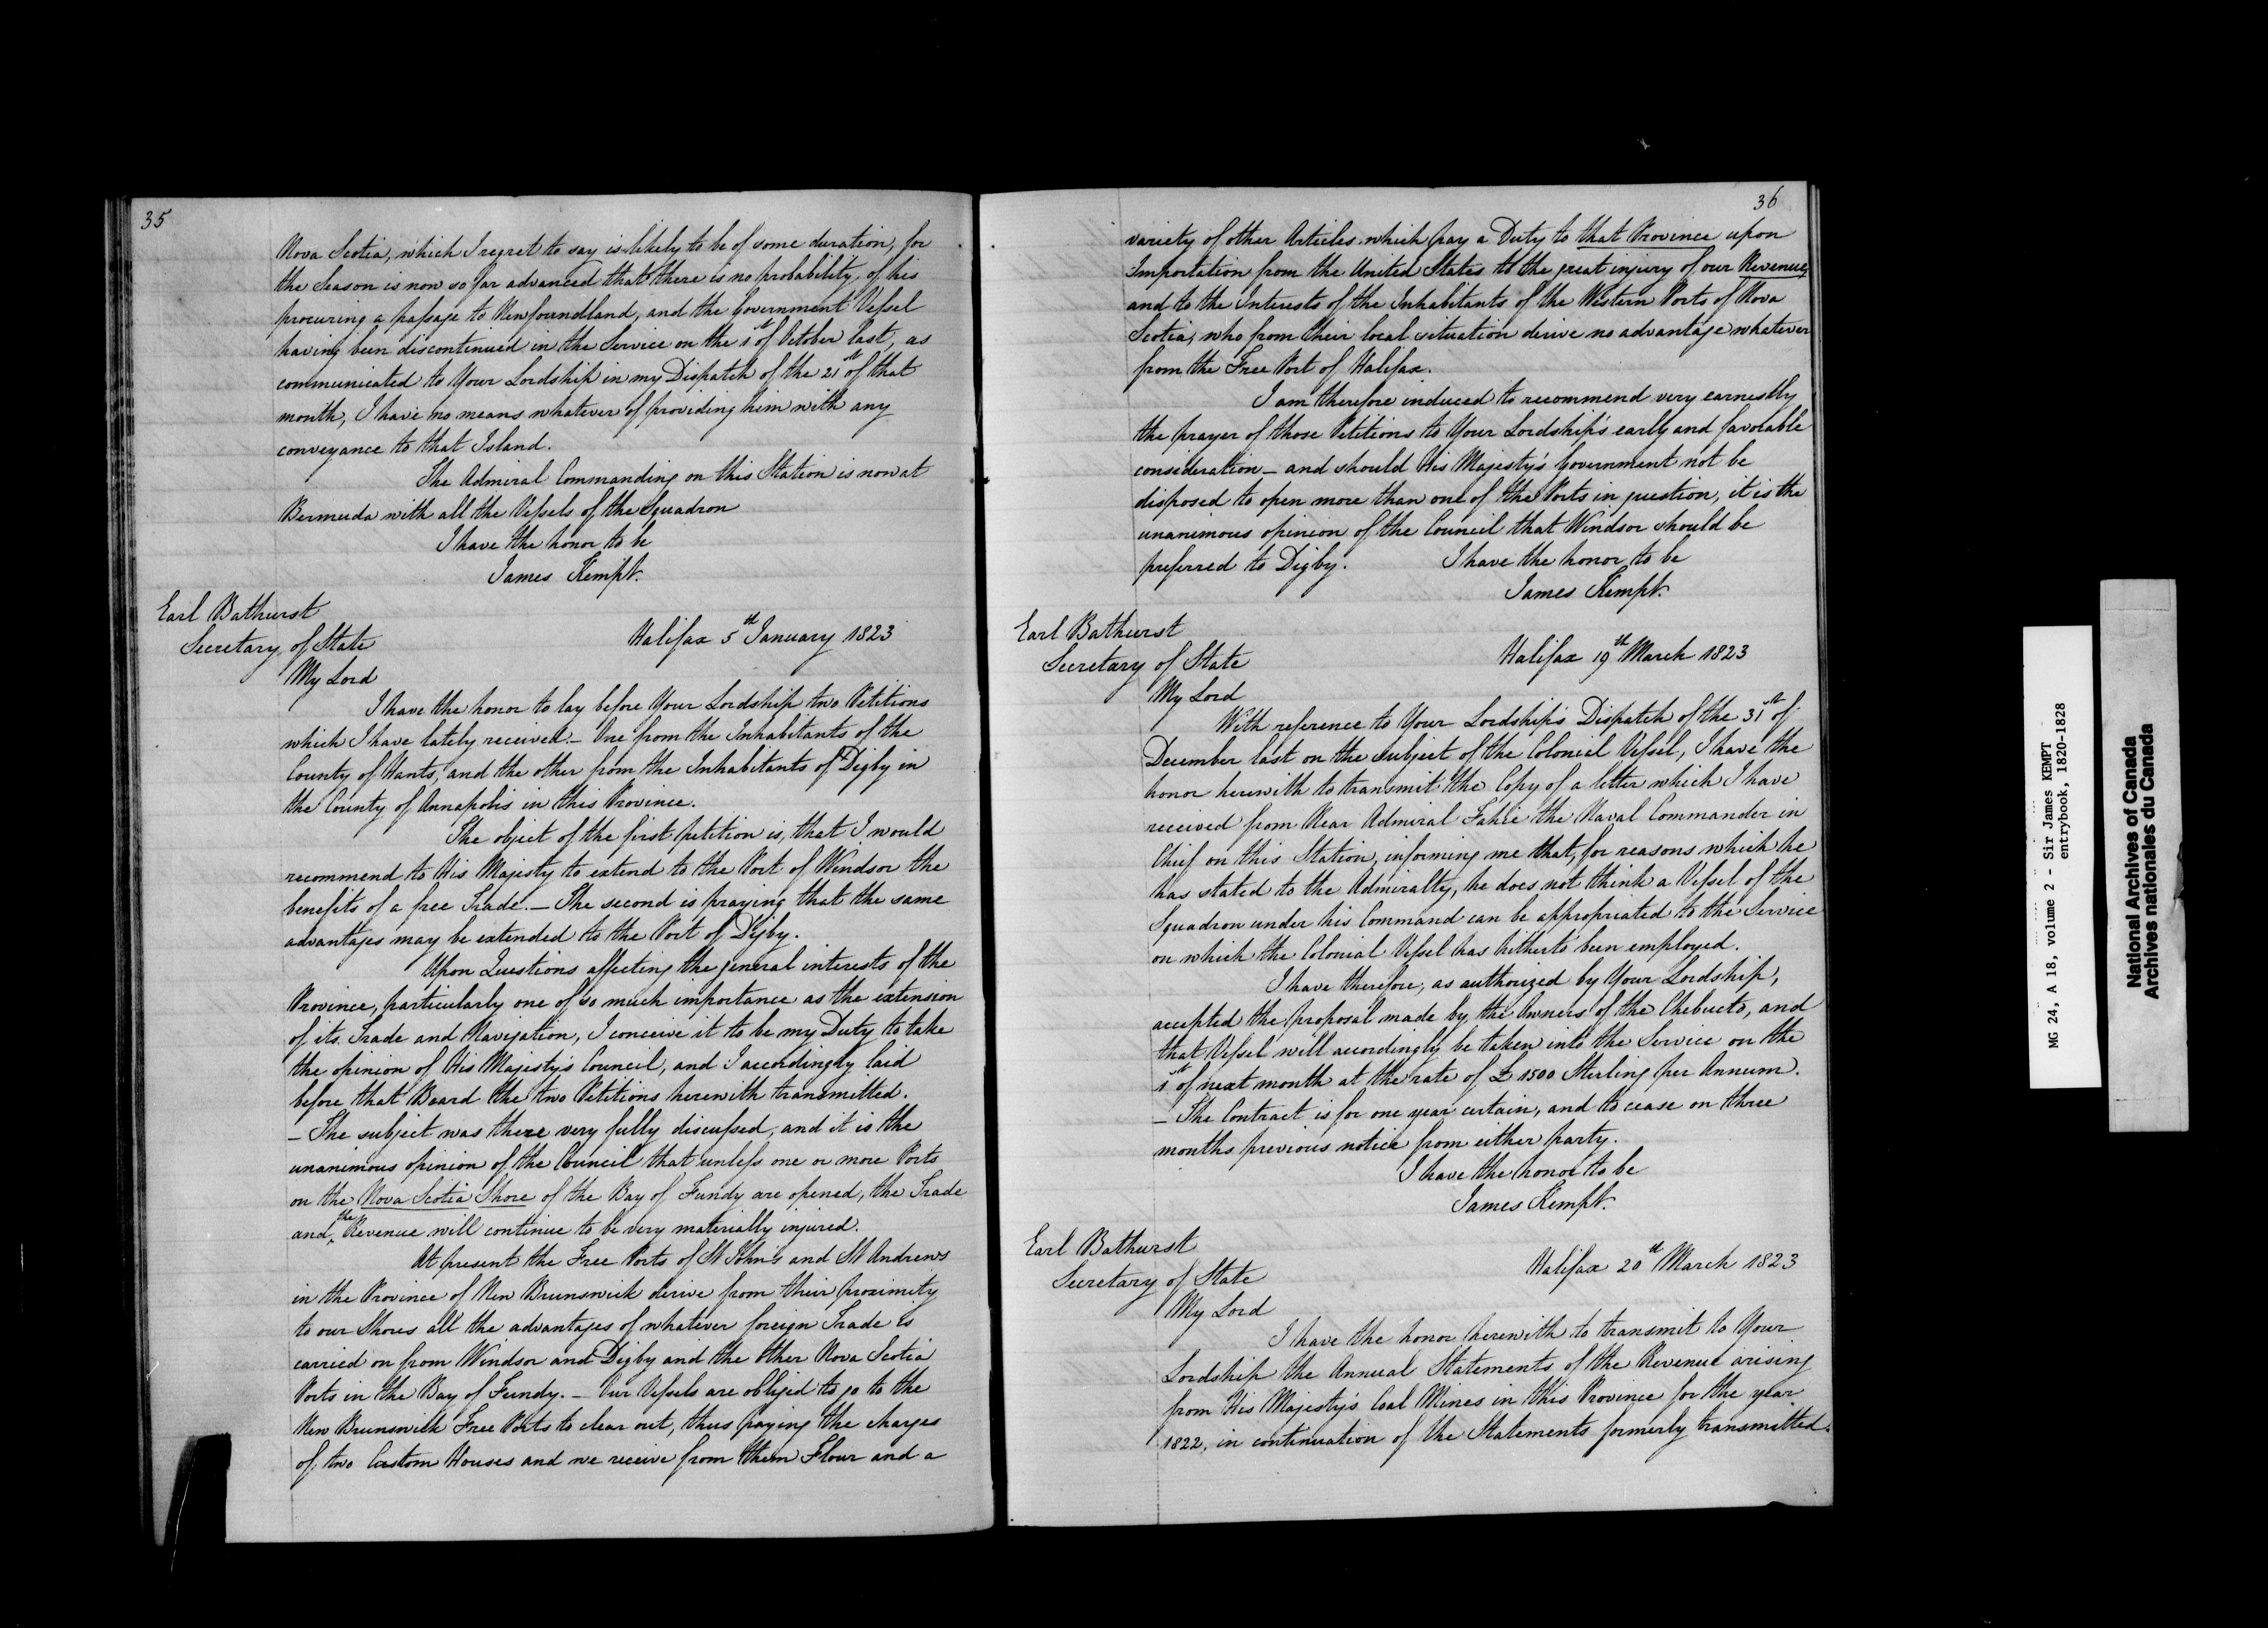 35
Nova Scotia, which I regret to say is likely to be of some duration, for
the Season is now so far advanced that there is no probability of his
procuring a passage to Newfoundland, and the Government Vessel
having been discontinued in the Service on the 1st of October last, as
communicated to Your Lordship in my Dispatch of the 21st of that
month, I have no means whatever of providing him with any
conveyance to that Island.
The Admiral Commanding on this Station is now at
Bermuda with all the Vessels of the Squadron
I have the honor to be
James Kempt.
Earl Bathurst
Secretary of State
Halifax 5th January 1823
My Lord
I have the honor to lay before Your Lordship two Petitions
which I have lately received. – One from the Inhabitants of the
County of Hants, and the other from the Inhabitants of Digby in
the County of Annapolis in this Province.
The object of the first petition is, that I would
recommend to His Majesty to extend to the Port of Windsor the
benefits of a free Trade. – The second is praying that the same
advantages may be extended to the Port of Digby.
Upon Questions affecting the general interests of the
Province, particularly one of so much importance as the extension
of its Trade and Navigation, I conceive it to be my Duty to take
the opinion of His Majesty's Council, and I accordingly laid
before that Board the two Petitions herewith transmitted.
– The subject was there very fully discussed, and it is the
unanimous opinion of the Council that unless one or more Ports
on the Nova Scotia Shore of the Bay of Fundy are opened, the Trade
and the Revenue will continue to be very materially injured.
At present the Free Ports of St John's and St Andrews
in the Province of New Brunswick derive from their proximity
to our Shores all the advantages of whatever foreign Trade is
carried on from Windsor and Digby and the other Nova Scotia
Ports in the Bay of Fundy. – Our Vessels are obliged to go to the
New Brunswick Free Ports to clear out, thus paying the charges
of two Custom Houses and we receive from them Flour and a
36
variety of other Articles which pay a Duty to that Province upon
Importation from the United States to the great injury of our Revenue,
and to the Interests of the Inhabitants of the Western Ports of Nova
Scotia, who from their local situation derive no advantage whatever
from the Free Port of Halifax.
I am therefore induced to recommend very earnestly
the prayer of those Petitions to Your Lordship's early and favorable
consideration – and should His Majesty's Government not be
disposed to open more than one of the Ports in question, it is the
unanimous opinion of the Council that Windsor should be
preferred to Digby. I have the honor to be
James Kempt.
Earl Bathurst
Secretary of State
Halifax 19th March 1823
My Lord
With reference to Your Lordship's Dispatch of the 31st of
December last on the subject of the Colonial Vessel, I have the
honor herewith to transmit the Copy of a letter which I have
received from Rear Admiral Fahie the Naval Commander in
Chief on this Station, informing me that, for reasons which he
has stated to the Admiralty, he does not think a Vessel of the
Squadron under his Command can be appropriated to the Service
on which the Colonial Vessel has hitherto been employed.
I have therefore, as authorized by Your Lordship,
accepted the proposal made by the Owners of the Chebucto, and
that Vessel will accordingly be taken into the Service on the
1st of next month at the rate of £1500 Sterling per Annum.
– The Contract is for one year certain, and to cease on three
months previous notice from either party.
I have the honor to be
James Kempt.
Earl Bathurst
Secretary of State
Halifax 20th March 1823
My Lord
I have the honor herewith to transmit to Your
Lordship the Annual Statements of the Revenue arising
from His Majesty's Coal Mines in this Province for the year
1822, in continuation of the Statements formerly transmitted.
MG 24, A 18, volume 2 - Sir James KEMPT
entrybook, 1820-1828
National Archives of Canada
Archives nationales du Canada